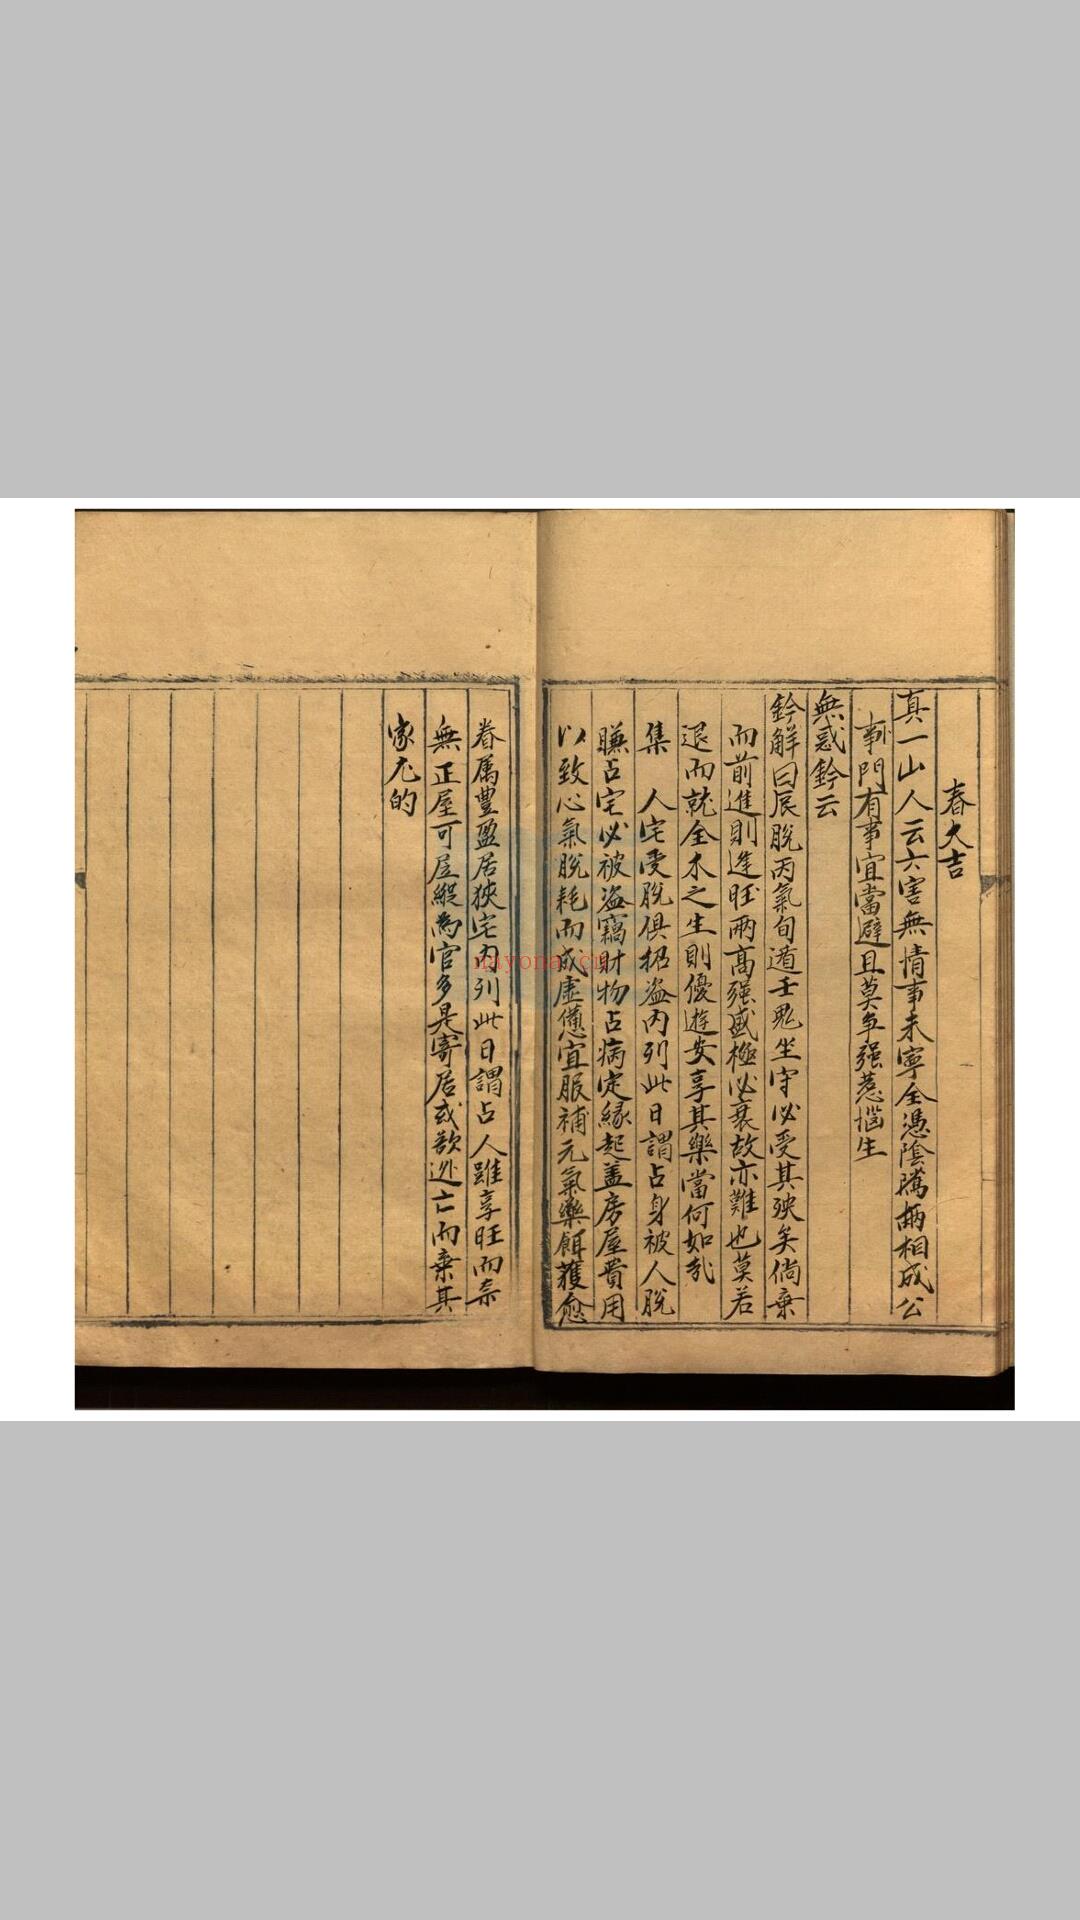 春大吉
真一山人云六害無情事未寧全憑陰騭兩相成公
事門有事宜當避且莫争强惹惱生
無惑鈐云
鈐解曰辰脫丙氣旬遁壬鬼坐守必受其殃矣倘棄
而前進則逢旺兩高强盛極必衰故亦難也莫若
退而就全木之生則優遊安享其樂當何如哉
集　人宅受脫俱招盗内列此日謂占身被人脫
賺占宅必被盗竊財物占病定緣起盖房屋費用
以致心氣脫耗而成虛憊宜服補元氣藥餌獲愈
眷属豐盈居狹宅内列此日謂占人雖享旺而柰
無正屋可居縱為官多是寄居或欲逃亡而棄其
家尤的
nayona.cn